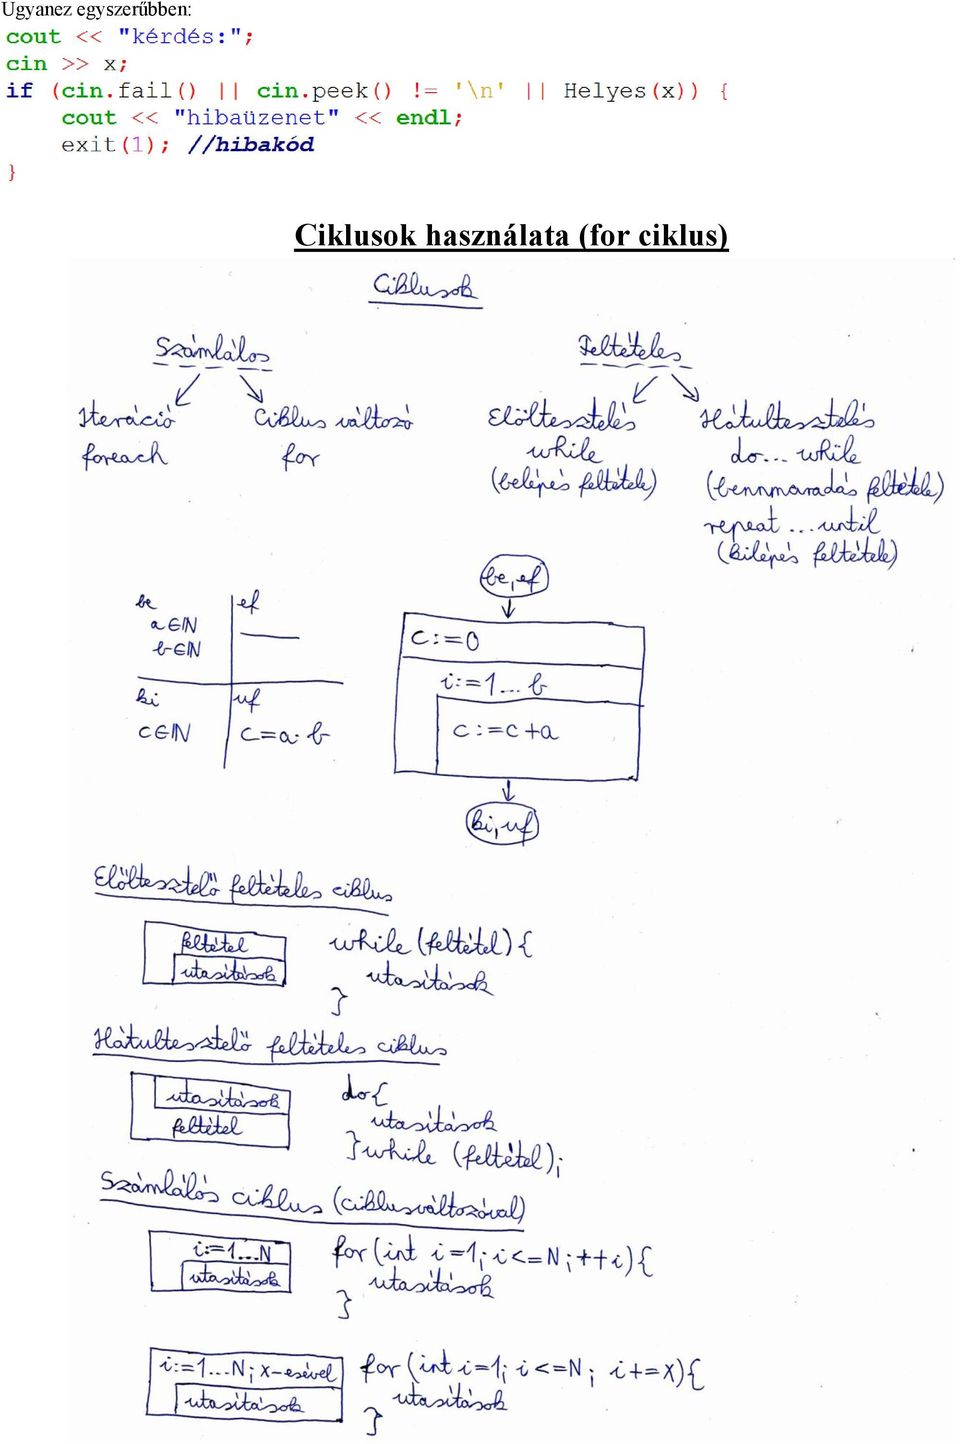 Ugyanez egyszerűbben:
cout << "kérdés:";
cin >> x;
if (cin.fail() || cin.peek() != '\n' || Helyes(x)) {
cout << "hibaüzenet" << endl;
exit(1); //hibakód
}
Ciklusok használata (for ciklus)
Ciklusok
Számlálós
Feltételes
Iteráció
foreach
Ciklus változó
for
Elöltesztelés
while
(belépés feltétele)
Hátultesztelés
do... while
(bennmaradás feltétele)
repeat ...until
(kilépés feltétele)
be
a∈ℕ
b∈ℕ
ef
ki
c∈ℕ
uf
c=a·b
be, ef
c:=0
i:=1...b
c:=c+a
ki, uf
Elöltesztelő feltételes ciklus
feltétel
utasítások
while (feltétel) {
utasítások
}
Hátultesztelő feltételes ciklus
utasítások
feltétel
do{
utasítások
}while (feltétel);
Számlálós ciklus (ciklusváltozóval)
i:=1...N
utasítások
for (int i=1; i<=N; ++i){
utasítások
}
i:=1...N; x-esével
utasítások
for (int i=1; i<=N; i+=x){
utasítások
}